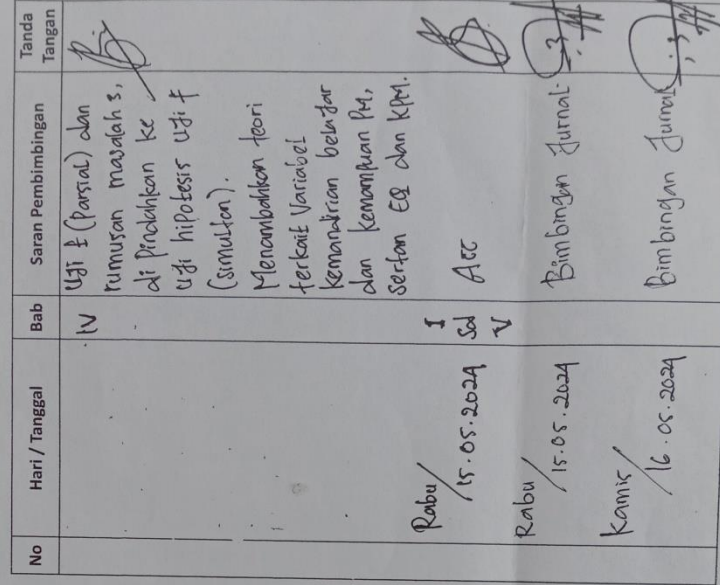 No Hari / Tanggal Bab Saran Pembimbingan Tanda Tangan
IV Uji t (Parsial) dan
rumusan masalah 3,
di pindahkan ke
uji hipotesis uji f
(simultan).
Menambahkan teori
terkait Variabel
kemandirian belajar
dan kemampuan PM,
sertan EQ dan KPM.
Rabu/ 15.05.2024 I Sd V Acc
Rabu/ 15.05.2024 Bimbingan Jurnal.
Kamis/ 16.05.2024 Bimbingan Jurnal